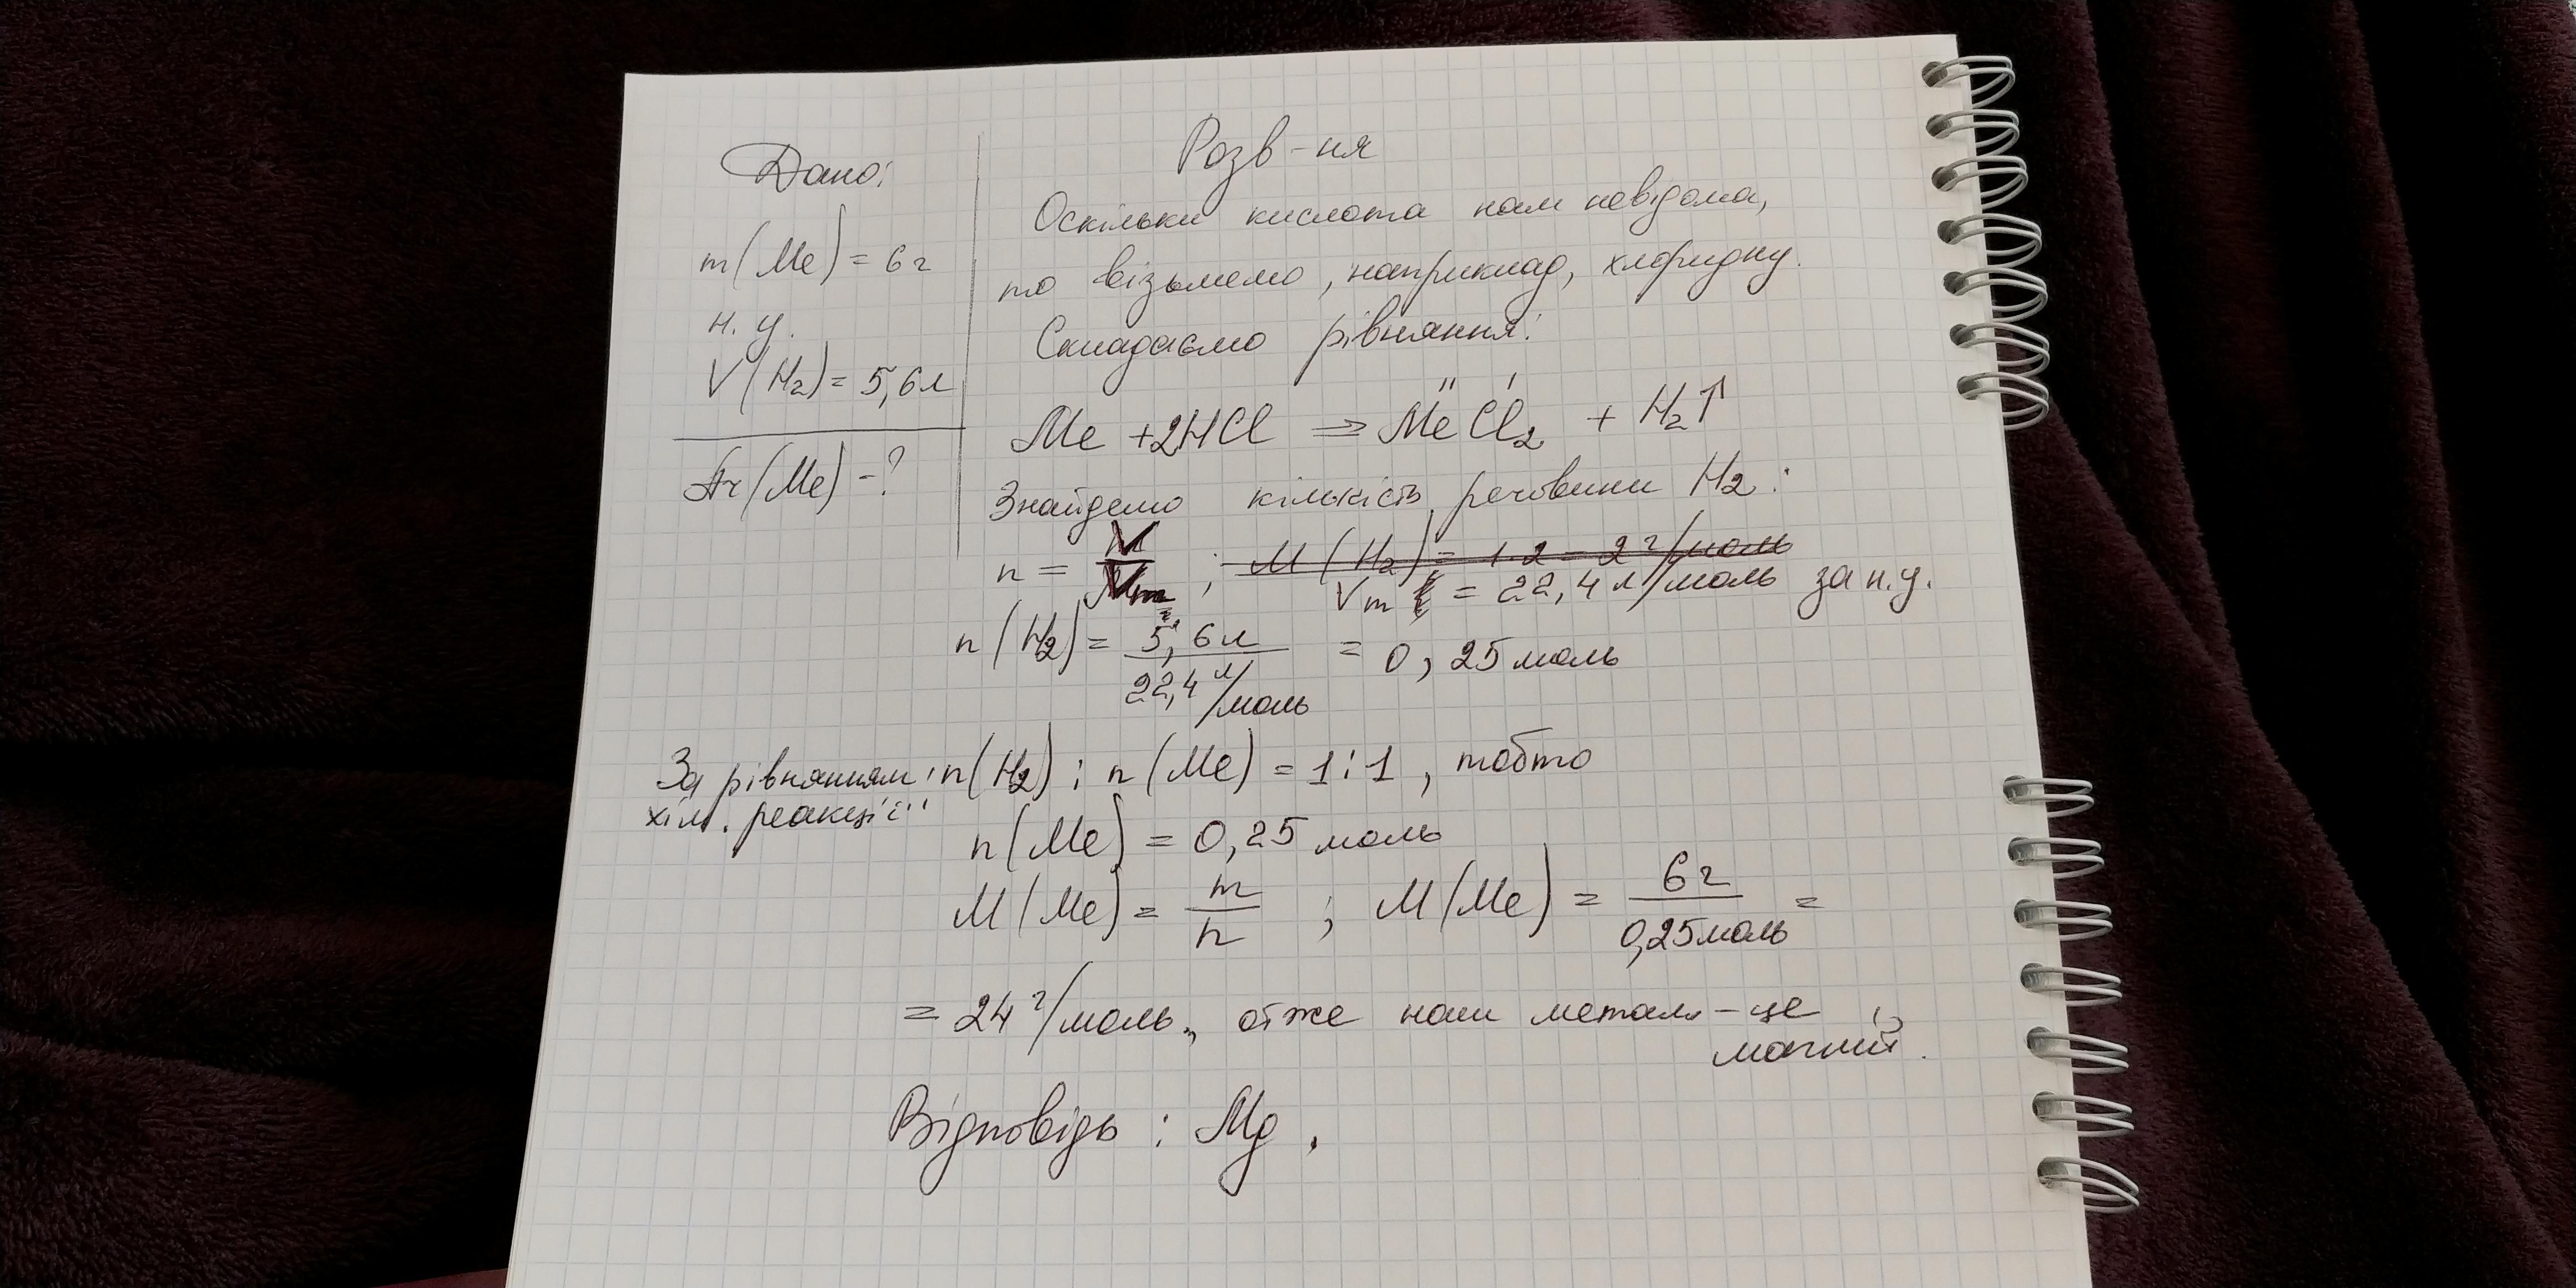 Дано:
m(Me) = 6г
н.у.
V(H₂) = 5,6л
Ar(Me) - ?
Розв-ня
Оскільки кислота нам невідома,
то візьмемо, наприклад, хлоридну.
Складаємо рівняння:
Me + 2HCl ⇒ MeCl₂ + H₂↑
Знайдемо кількість речовини H₂:
n = V/Vm ; M(H₂) = 1·2 = 2 г/моль
Vm = 22,4 л/моль за н.у.
n(H₂) = 5,6л / 22,4 л/моль = 0,25 моль
За рівнянням хім. реакції: n(H₂) : n(Me) = 1:1, тобто
n(Me) = 0,25 моль
M(Me) = m/n ; M(Me) = 6г / 0,25моль =
= 24 г/моль, отже наш метал - це
магній.
Відповідь: Mg.